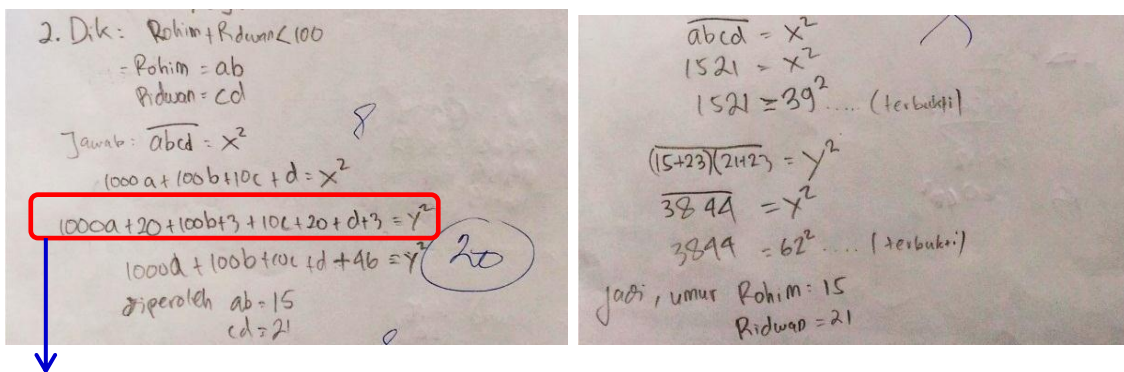 2. Dik: Rohim + Ridwan < 100
= Rohim = ab
Ridwan = cd
8
Jawab: abcd = x²
1000a + 100b + 10c + d = x²
1000a + 20 + 100b + 3 + 10c + 20 + d + 3 = y²
1000a + 100b + 10c + d + 46 = y²
20
diperoleh ab = 15
cd = 21
abcd = x²
1521 = x²
1521 = 39² .... (terbukti)
(15+23)(21+23) = y²
3844 = y²
3844 = 62² .... (terbukti)
jadi, umur Rohim : 15
Ridwan = 21